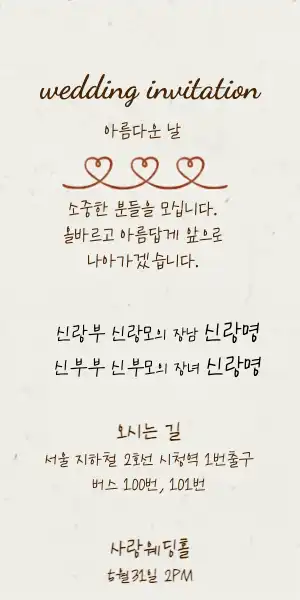 wedding invitation
아름다운 날
소중한 분들을 모십니다.
올바르고 아름답게 앞으로
나아가겠습니다.
신랑부 신랑모의 장남 신랑명
신부부 신부모의 장녀 신랑명
오시는 길
서울 지하철 2호선 시청역 1번출구
버스 100번, 101번
사랑웨딩홀
5월31일 2PM